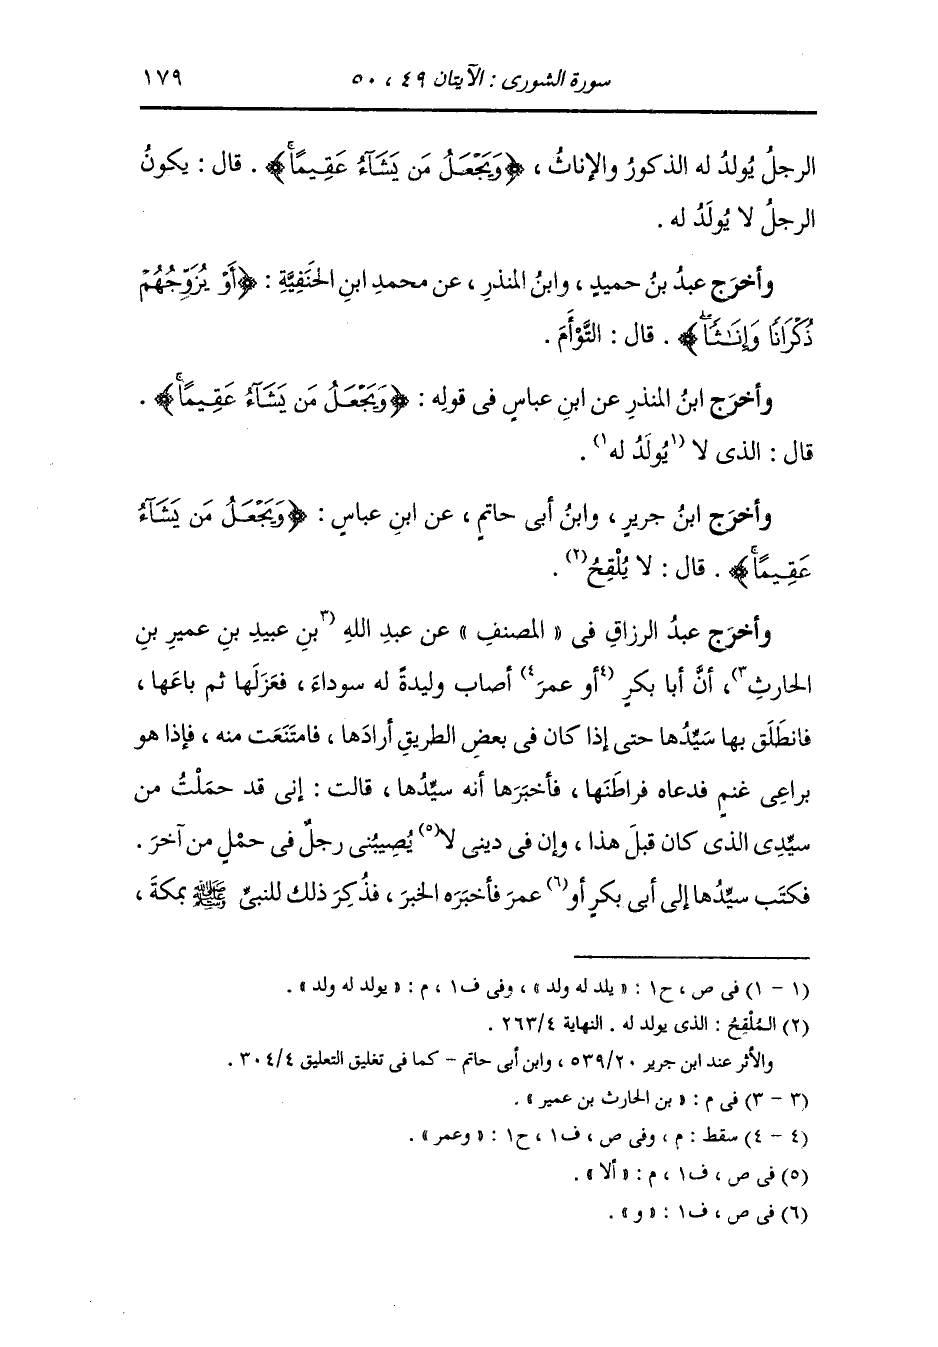 سورة الشورى : الآيتان ٤٩ ، ٥٠
١٧٩
الرجلُ يُولدُ له الذكورُ والإناثُ ، ﴿وَيَجْعَلُ مَن يَشَآءُ عَقِيمًاۚ﴾ . قال : يكونُ
الرجلُ لا يُولَدُ له .
وأخرَج عبدُ بنُ حميدٍ ، وابنُ المنذرِ ، عن محمدِ ابنِ الحَنَفِيَّةِ : ﴿أَوْ يُزَوِّجُهُمْ
ذُكْرَانًا وَإِنَٰثًاۖ﴾ . قال : التَّوْأَمَ .
وأخرَج ابنُ المنذرِ عن ابنِ عباسٍ فى قولِه : ﴿وَيَجْعَلُ مَن يَشَآءُ عَقِيمًاۚ﴾ .
قال : الذى لا (١يُولَدُ له١) .
وأخرَج ابنُ جريرٍ ، وابنُ أبى حاتمٍ ، عن ابنِ عباسٍ : ﴿وَيَجْعَلُ مَن يَشَآءُ
عَقِيمًاۚ﴾ . قال : لا يُلْقِحُ(٢) .
وأخرَج عبدُ الرزاقِ فى « المصنفِ » عن عبدِ اللهِ (٣بنِ عبيدِ بنِ عميرِ بنِ
الحارثِ٣)، أنَّ أبا بكرٍ (٤أو عمرَ٤) أصاب وليدةً له سوداءَ ، فعَزَلَها ثم باعَها ،
فانطَلَق بها سَيِّدُها حتى إذا كان فى بعضِ الطريقِ أرادَها ، فامتَنَعَت منه ، فإذا هو
براعِى غنمٍ فدعاه فراطَنَها ، فأخبَرَها أنه سيِّدُها ، قالت : إنى قد حمَلْتُ من
سيِّدِى الذى كان قبلَ هذا ، وإن فى دينى لا(٥) يُصِيبُنى رجلٌ فى حمْلٍ من آخرَ .
فكتَب سيِّدُها إلى أبى بكرٍ أو(٦) عمرَ فأخبَرَه الخبرَ ، فذُكِرَ ذلك للنبىِّ ﷺ بمكةَ ،
(١ - ١) فى ص ، ح١ : « يلد له ولد » ، وفى ف١ ، م : « يولد له ولد » .
(٢) المُلْقِحُ : الذى يولد له . النهاية ٢٦٣/٤ .
والأثر عند ابن جرير ٥٣٩/٢٠ ، وابن أبى حاتم - كما فى تغليق التعليق ٣٠٤/٤ .
(٣ - ٣) فى م : « بن الحارث بن عمير » .
(٤ - ٤) سقط : م ، وفى ص ، ف١ ، ح١ : « وعمر » .
(٥) فى ص ، ف١ ، م : « ألا » .
(٦) فى ص ، ف١ : « و » .